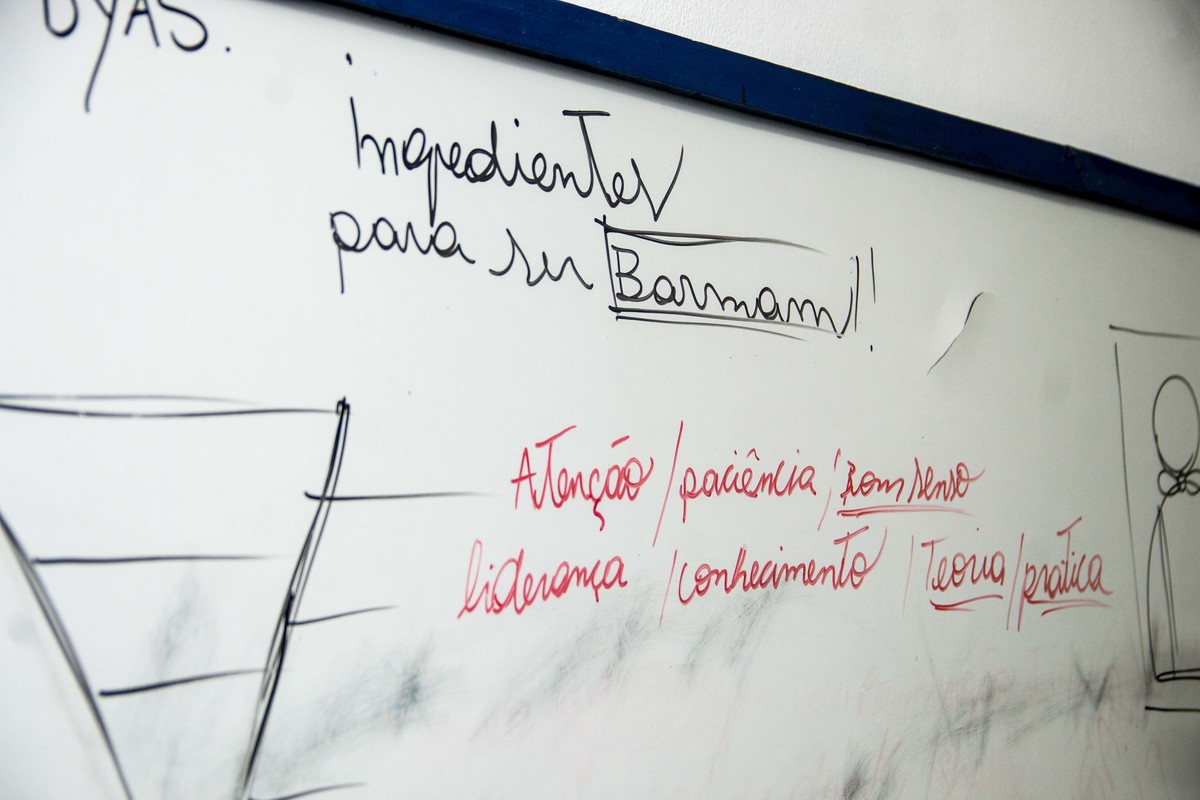 Ingredientes
para ser Barmam!!
Atenção / paciência / Bom senso
liderança / conhecimento / Teoria / pratica